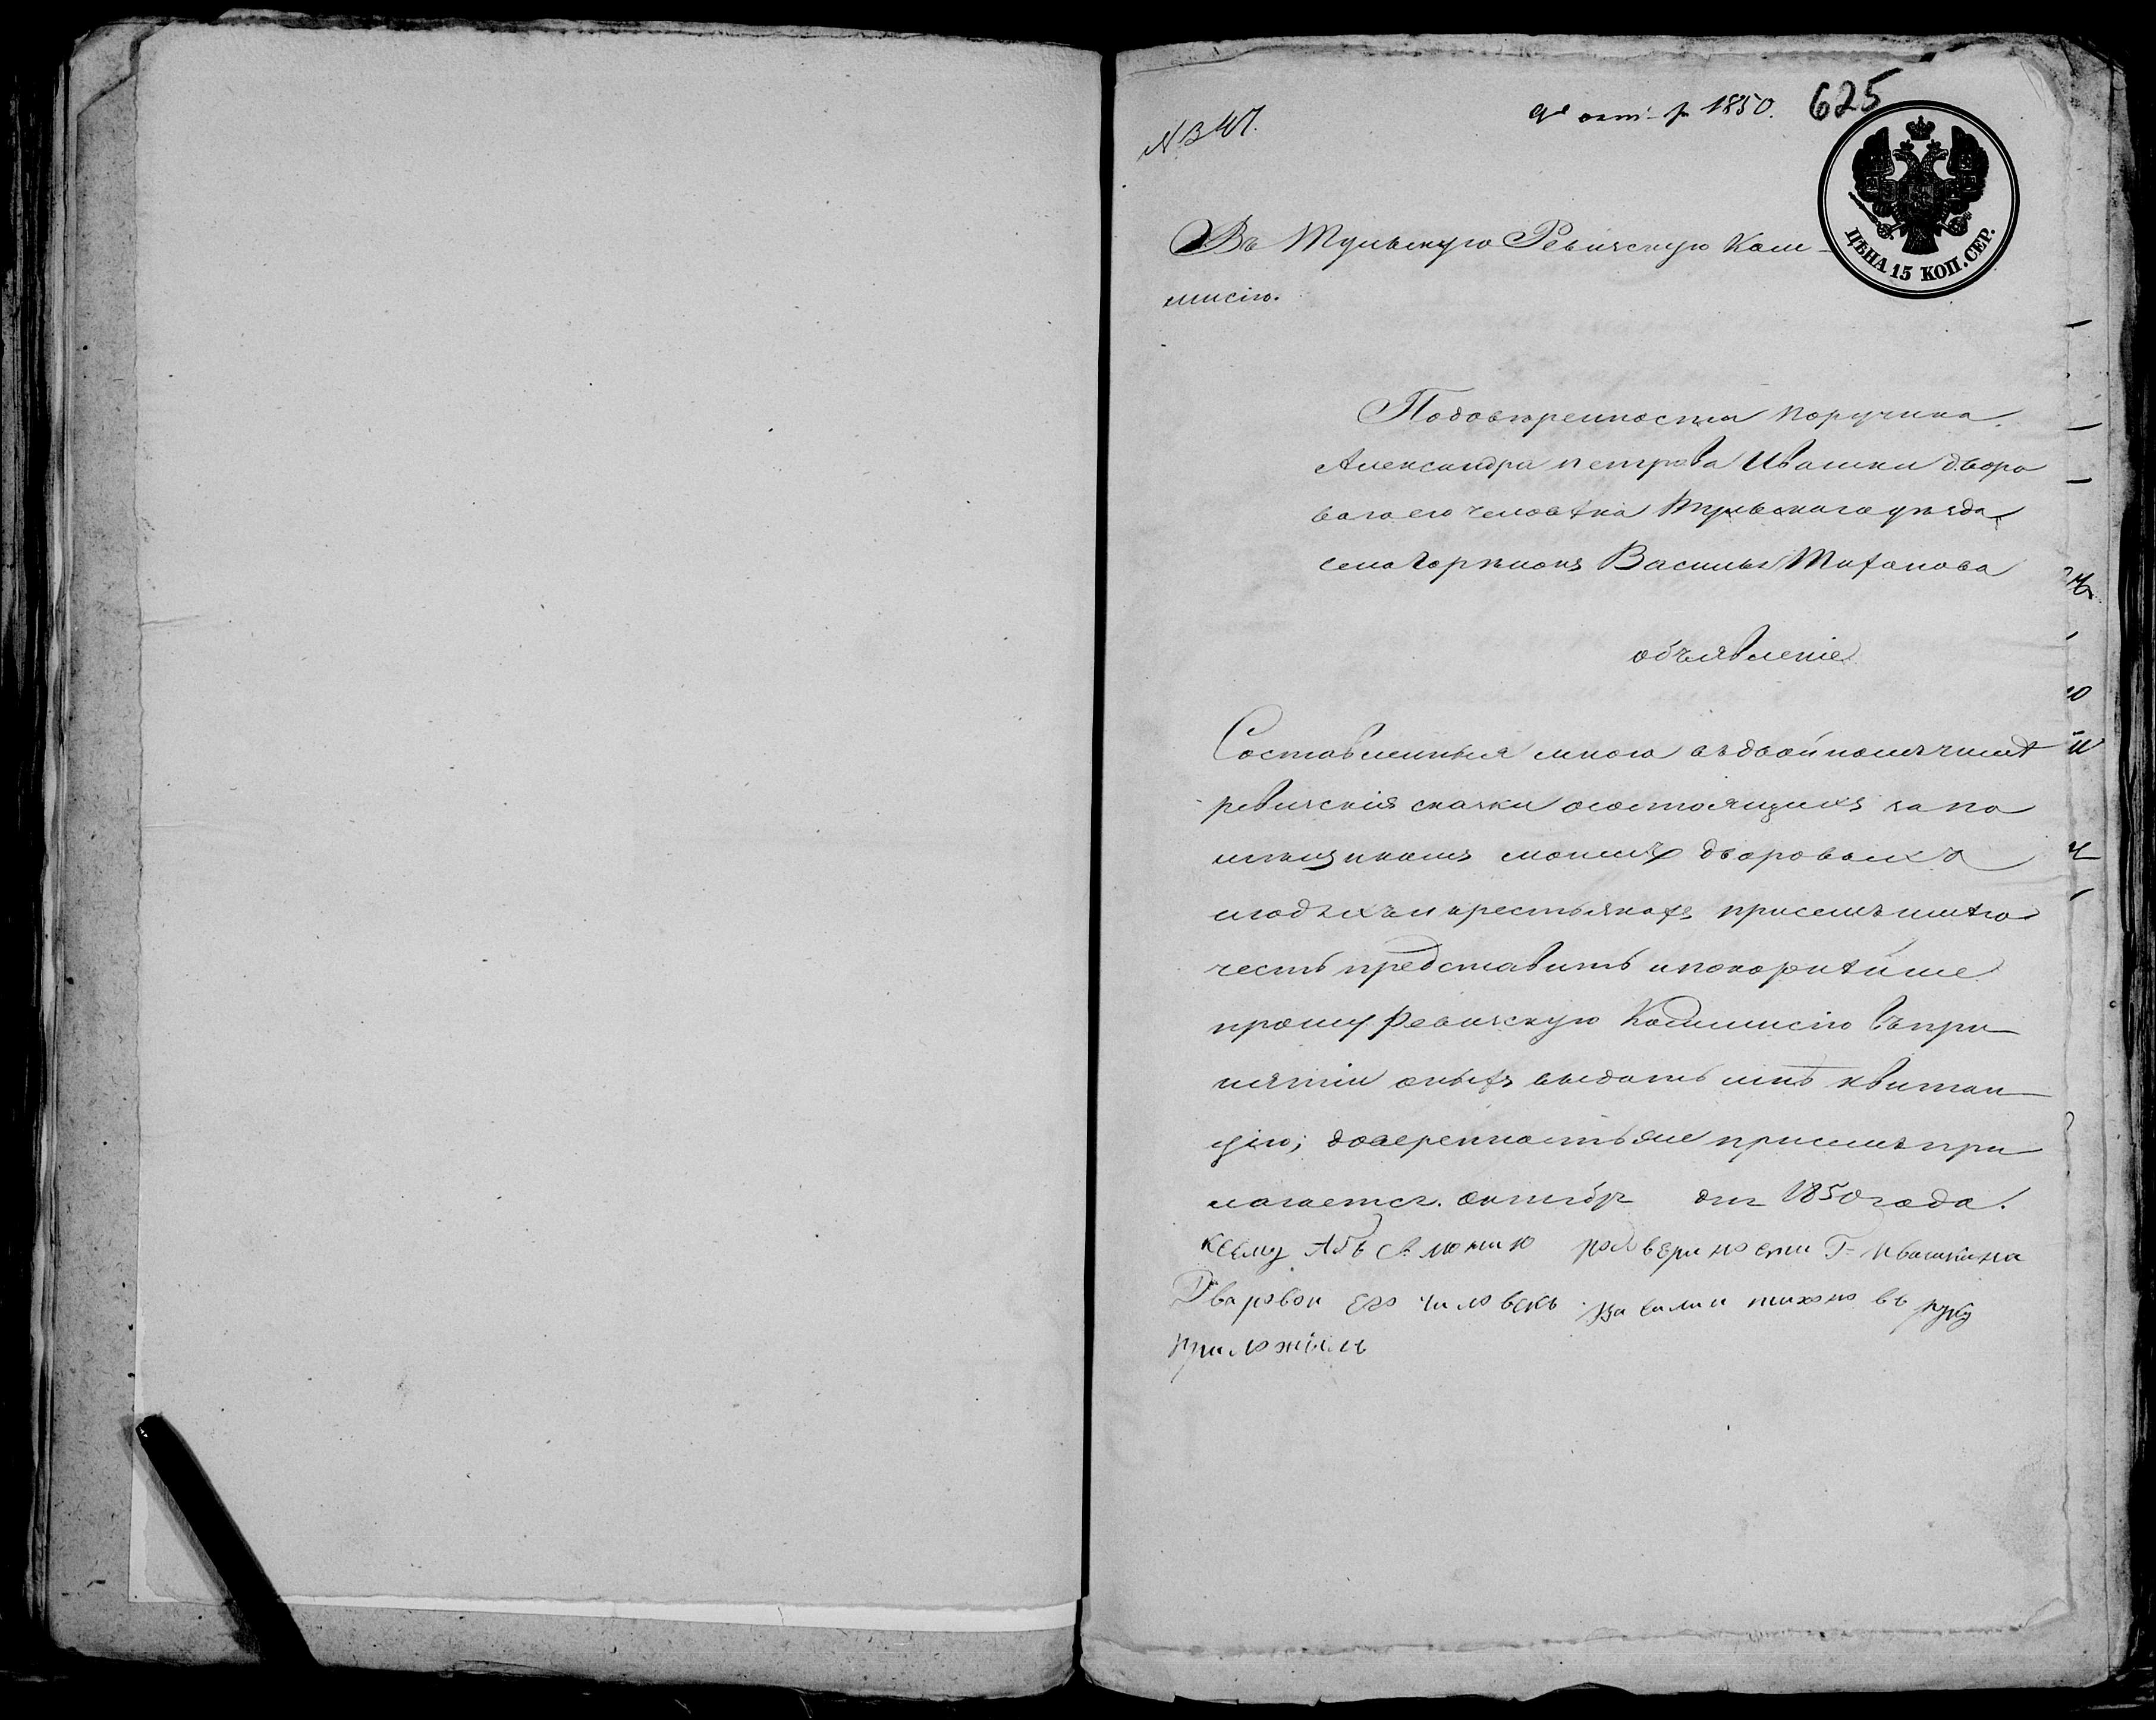 625
9го окт-р 1850.
N 347.
ЦѢНА 15 КОП. СЕР.
Въ Тульскую Ревизскую Ком-
мисію.
Подовѣренности Поручика
Александра Петрова Ивашки дворо
ваго его человѣка Тульскаго уѣзда
села Горѣлокъ Василья Тиханова
объявленіе
Составленныя мною въ двойномъ числѣ
ревизскія сказки о состоящихъ за по
мѣщикомъ моимъ дворовыхъ
людяхъ и крестьянахъ присемъ имѣю
честь представить и покорнѣйше
прошу Ревизскую Коммисію въ при
нятіи оныхъ выдать мнѣ квитан
цію; довереность же присемъ при
лагается. Октября дня 1850 года.
Ксему Абьевлюнию подовериности Г= Ивашкина
Дваровои Его чиловекъ Василии тихоновъ руку
приложилъ